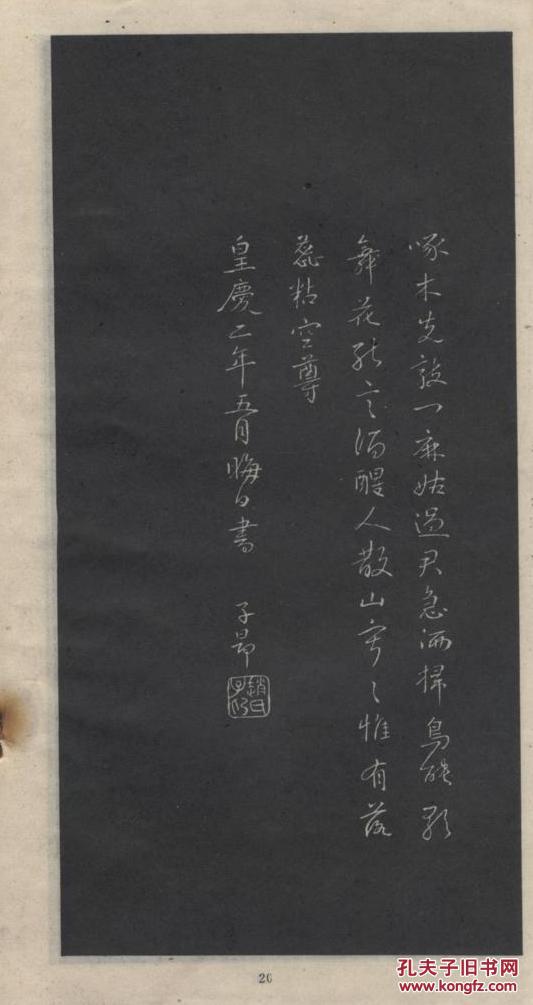 啄木先敲门麻姑過君急洒掃鳥能歌
舞花能言酒醒人散山寂〻惟有落
蕊粘空尊
皇慶二年五月晦日書 子昂
趙氏子昂
26
孔夫子旧书网
www.kongfz.com